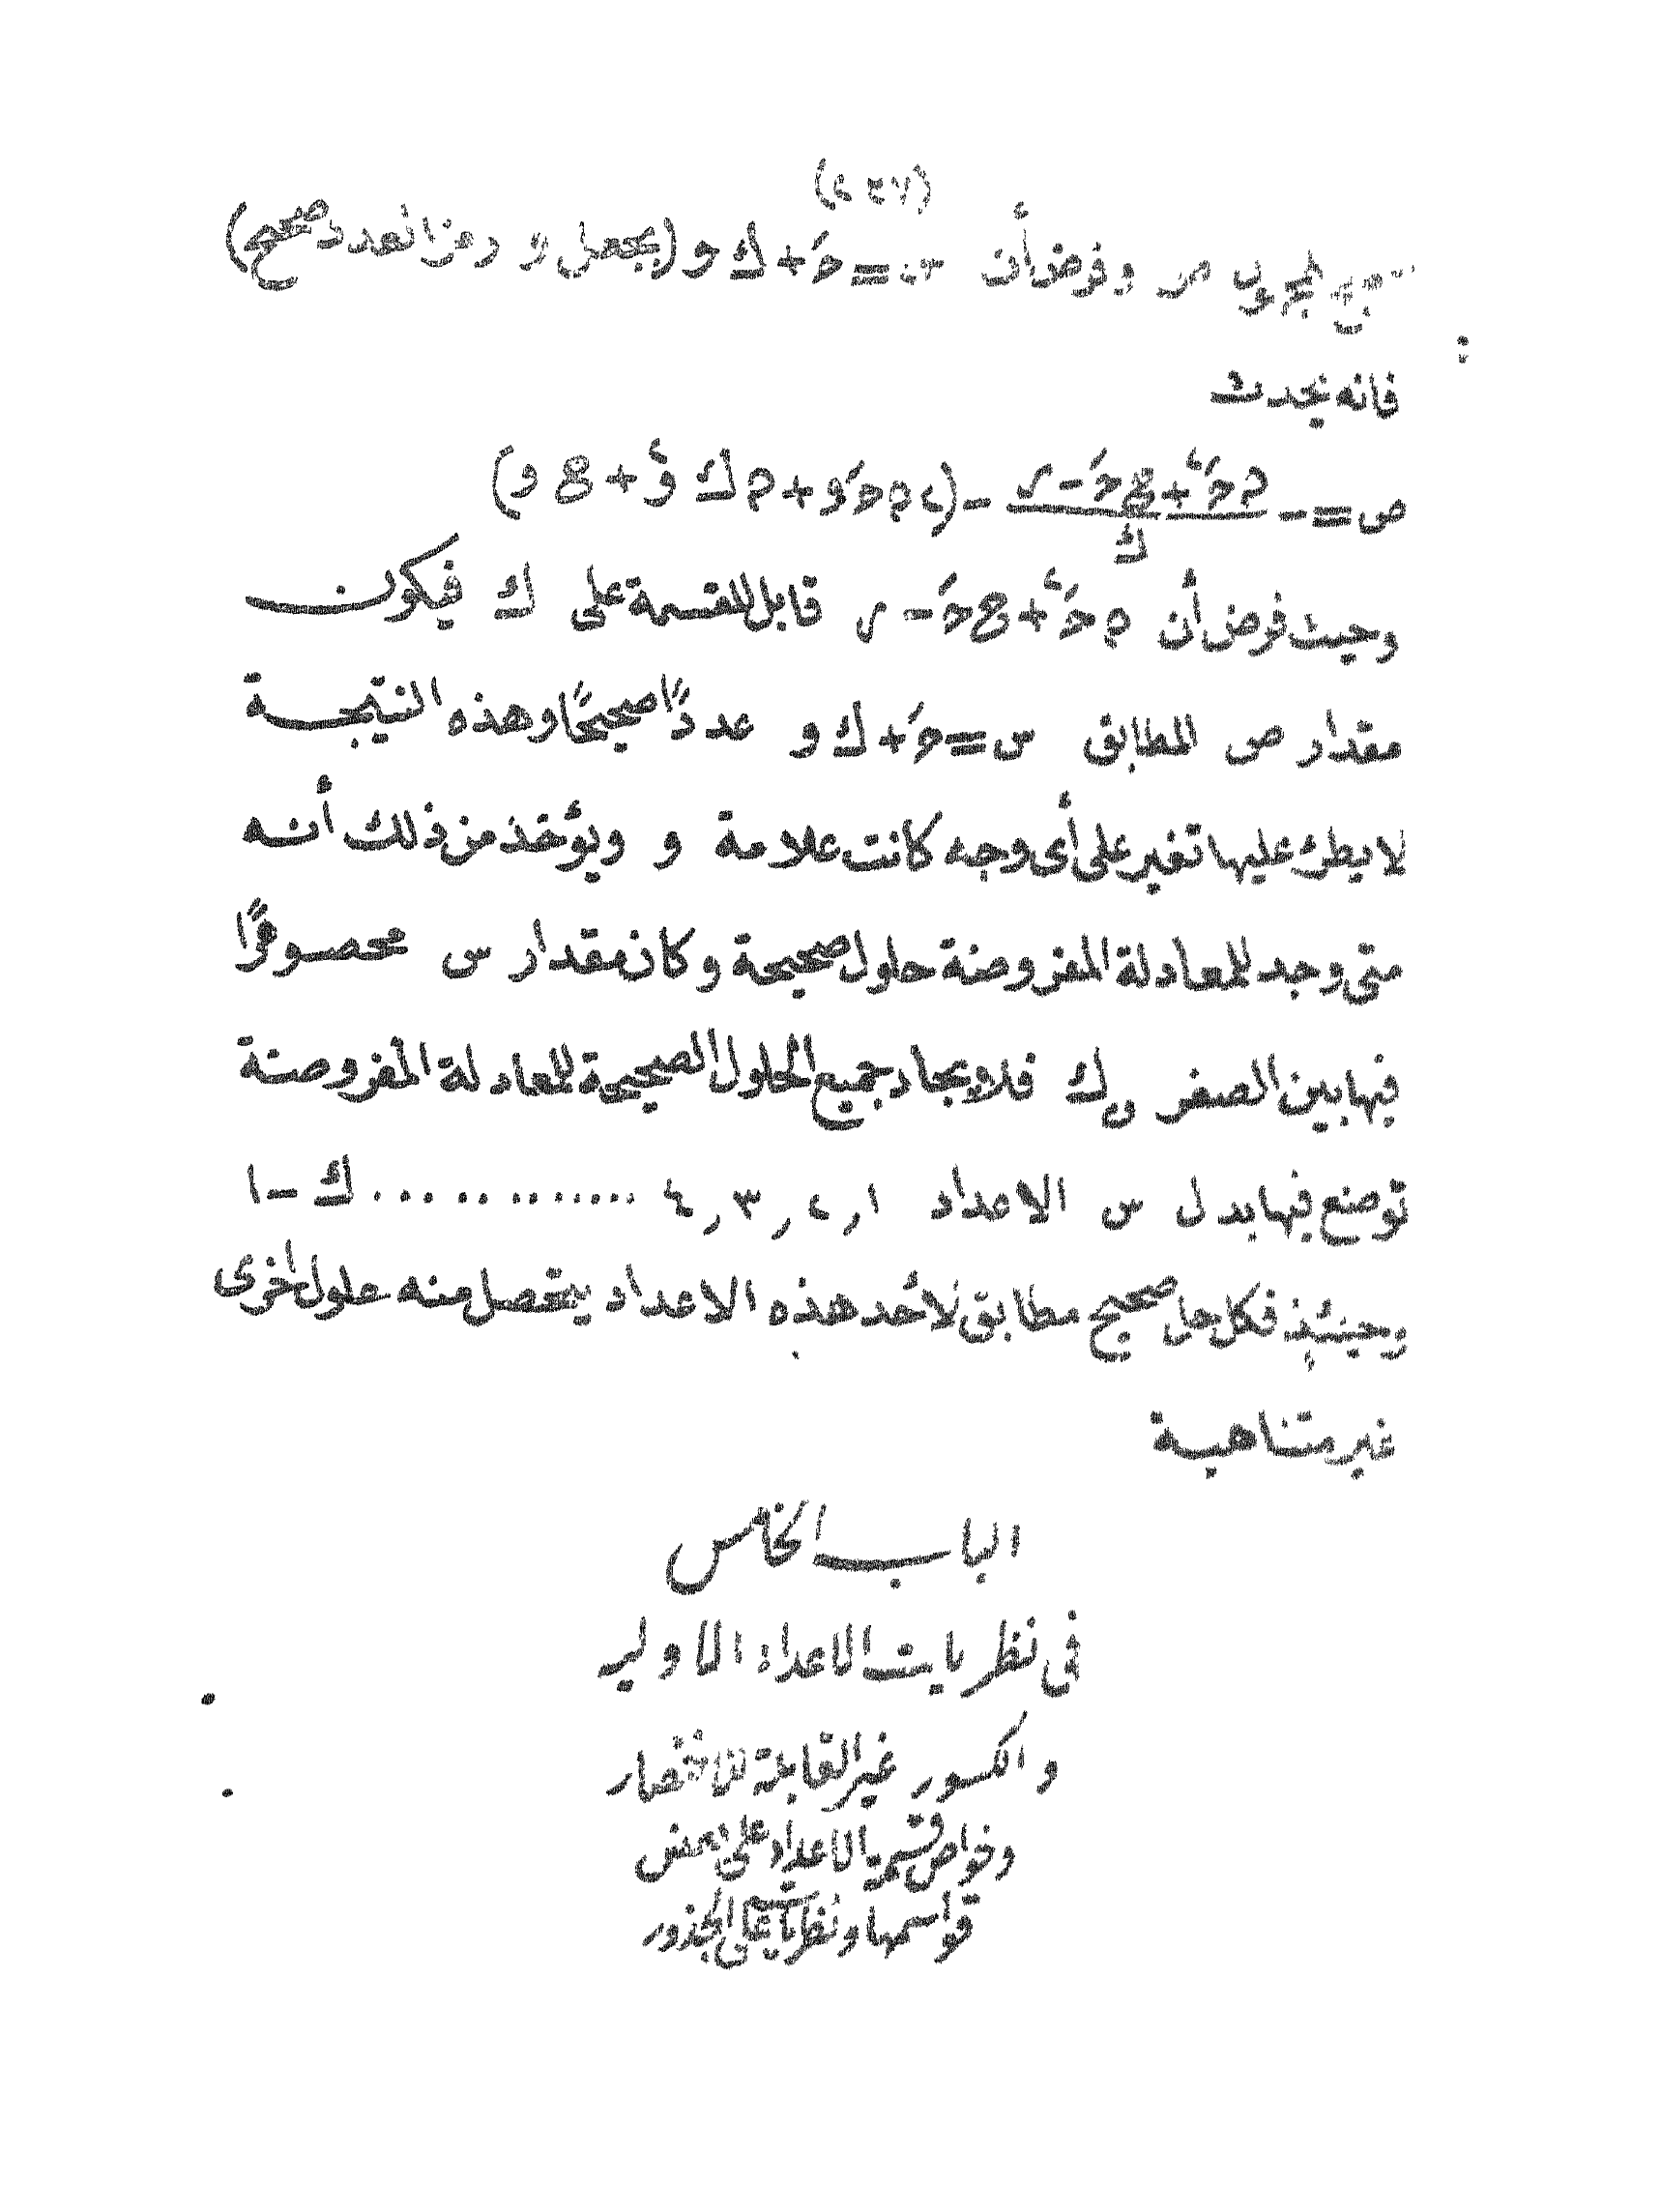 (٢٣٧)
المجهول ص وفرض أن س = حَ + ك و (بجعل و رمزا لعدد صحيح)
فانه يحدث
ص = - (م حَ٢ + ع حَ - ر)/ك - (٢ م حَ و + م ك و٢ + ع و)
وحيث فرض أن م حَ٢ + ع حَ - ر قابل للقسمة على ك فيكون
مقدار ص المطابق س = حَ + ك و عددًا صحيحًا وهذه النتيجة
لا يطرأ عليها تغير على أى وجه كانت علامة و ويؤخذ من ذلك أنه
متى وجد للمعادلة المفروضة حلول صحيحة وكان مقدار س محصورًا
فيها بين الصفر و ك فلايجاد جميع الحلول الصحيحة للمعادلة المفروضة
توضع فيها بدل س الاعداد ١ , ٢ , ٣ , ٤ .............. ك - ١
وحينئذ فكل حل صحيح مطابق لأحد هذه الاعداد يتحصل منه حلول اخرى
غير متناهية
الباب الخامس
فى نظريات الاعداد الاولية
والكسور غير القابلة للاختصار
وخواص قسمة الاعداد على بعض
قواسمها ونظريات على الجذور